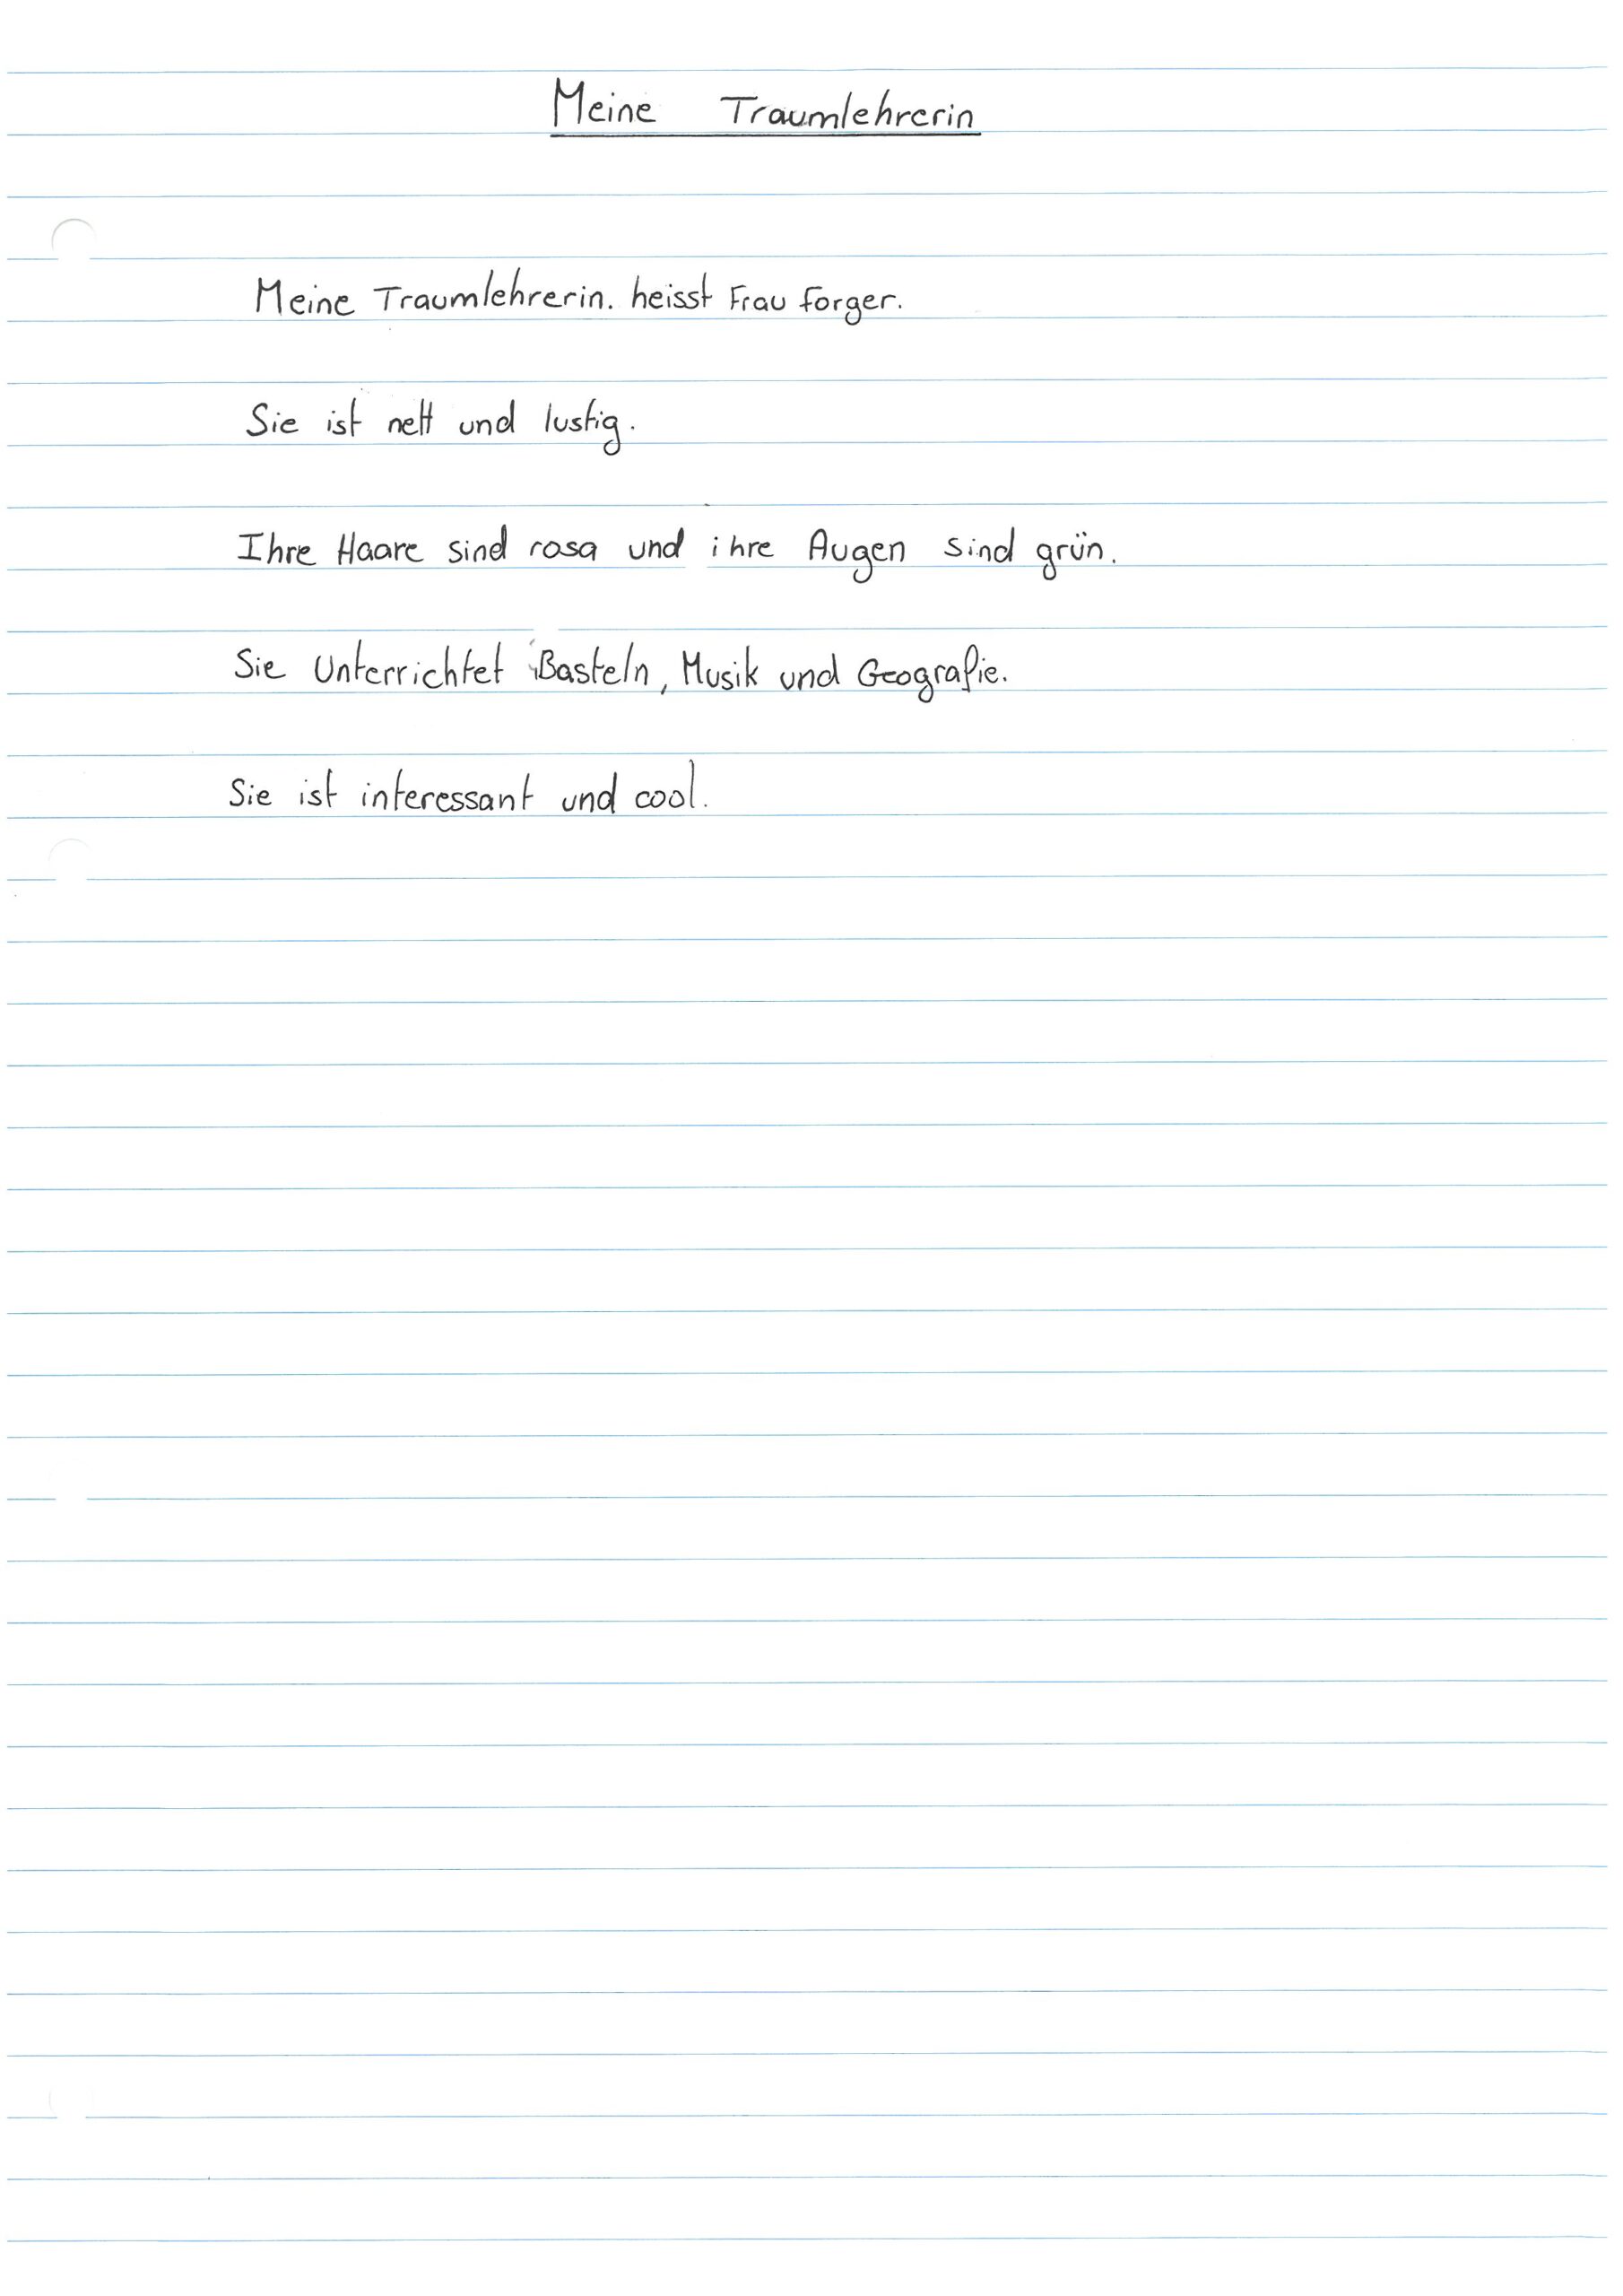 Meine Traumlehrerin
Meine Traumlehrerin. heisst Frau forger.
Sie ist nett und lustig.
Ihre Haare sind rosa und ihre Augen sind grün.
Sie Unterrichtet Basteln, Musik und Geografie.
Sie ist interessant und cool.